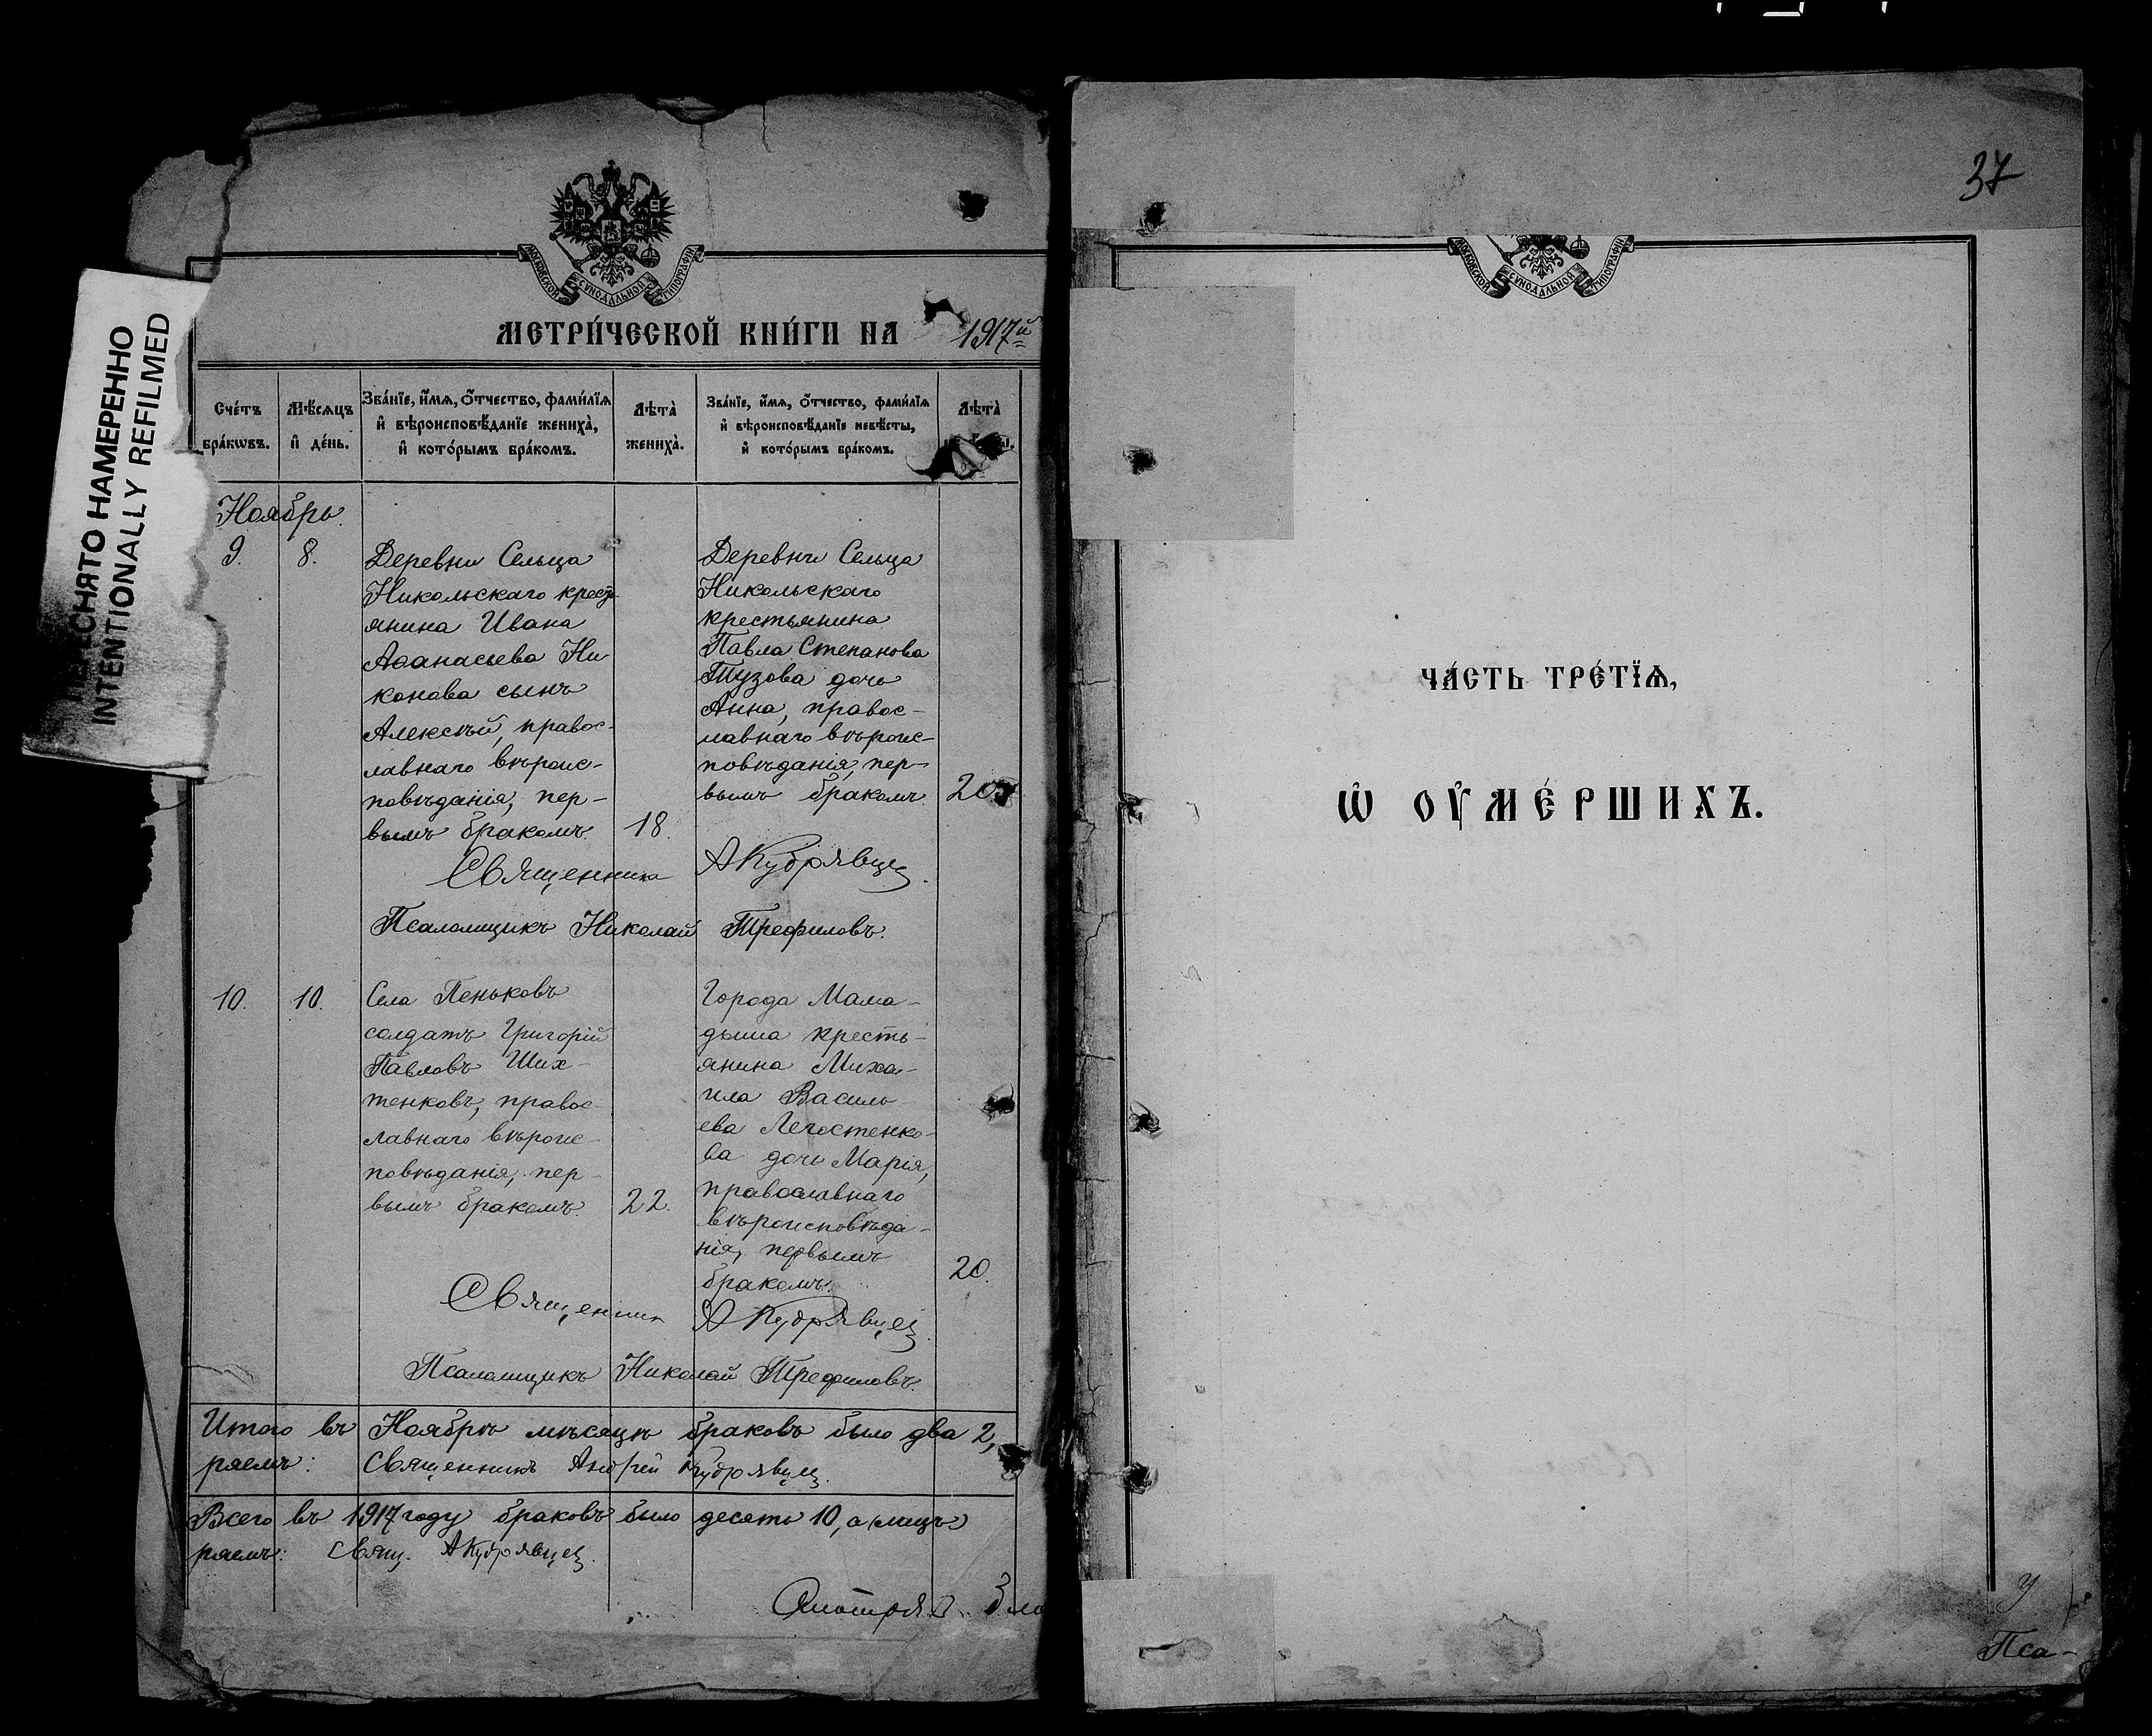 ПЕРЕСНЯТО НАМЕРЕННО
INTENTIONALLY REFILMED
МОСКОВСКОЙ СУНОДАЛЬНОЙ ТИПОГРАФІИ
МЕТРИ́ЧЕСКОЙ КНИ́ГИ НА 1917й
Сче́тъ бра́кѡвъ.
Мѣ́сѧцъ и҆ де́нь.
Зва́нїе, и҆́мѧ, ѻ҆́тчество, фами́лїѧ и҆ вѣроисповѣ́данїе жениха̀, и҆ кото́рымъ бра́комъ.
Лѣта̀ жениха̀.
Зва́нїе, и҆́мѧ, ѻ҆́тчество, фами́лїѧ и҆ вѣроисповѣ́данїе невѣ́сты, и҆ кото́рымъ бра́комъ.
Лѣта̀
Ноябрь.
9. 8.
Деревни Сельца
Никольскаго кресть-
янина Ивана
Аѳанасьева Ни
конова сынъ
Алексѣй, правос-
лавнаго вѣроис-
повѣданія, пер-
вымъ бракомъ. 18.
Деревни Сельца
Никольскаго
крестьянина
Павла Степанова
Тузова дочь
Анна, правос-
лавнаго вѣроис-
повѣданія, пер-
вымъ бракомъ 20
Священникъ АКудрявцев.
Псаломщикъ Николай Трефиловъ.
10. 10.
Села Пеньковъ
солдатъ Григорій
Павловъ Ших-
тенковъ, правос-
лавнаго вѣроис-
повѣданія, пер-
вымъ бракомъ. 22.
Города Мама-
дыша кресть-
янина Миха-
ила Василь
ева Легостенко-
ва дочь Марія,
православнаго
вѣроисповѣда-
нія, первымъ
бракомъ. 20.
Священник АКудрявцев.
Псаломщикъ Николай Трефиловъ.
Итого въ Ноябрѣ мѣсяцѣ браковъ было два 2,
ряемъ: Священникъ Андрей Кудрявцев.
Всего въ 1917 году браковъ было десять 10, а (лицъ)
ряемъ: Свящ. АКудрявцев.
37
МОСКОВСКОЙ СУНОДАЛЬНОЙ ТИПОГРАФІИ
ЧА́СТЬ ТРЕ́ТЇѦ,
Ѡ҆ ОУ҆МЕ́РШИХЪ.
Пса-